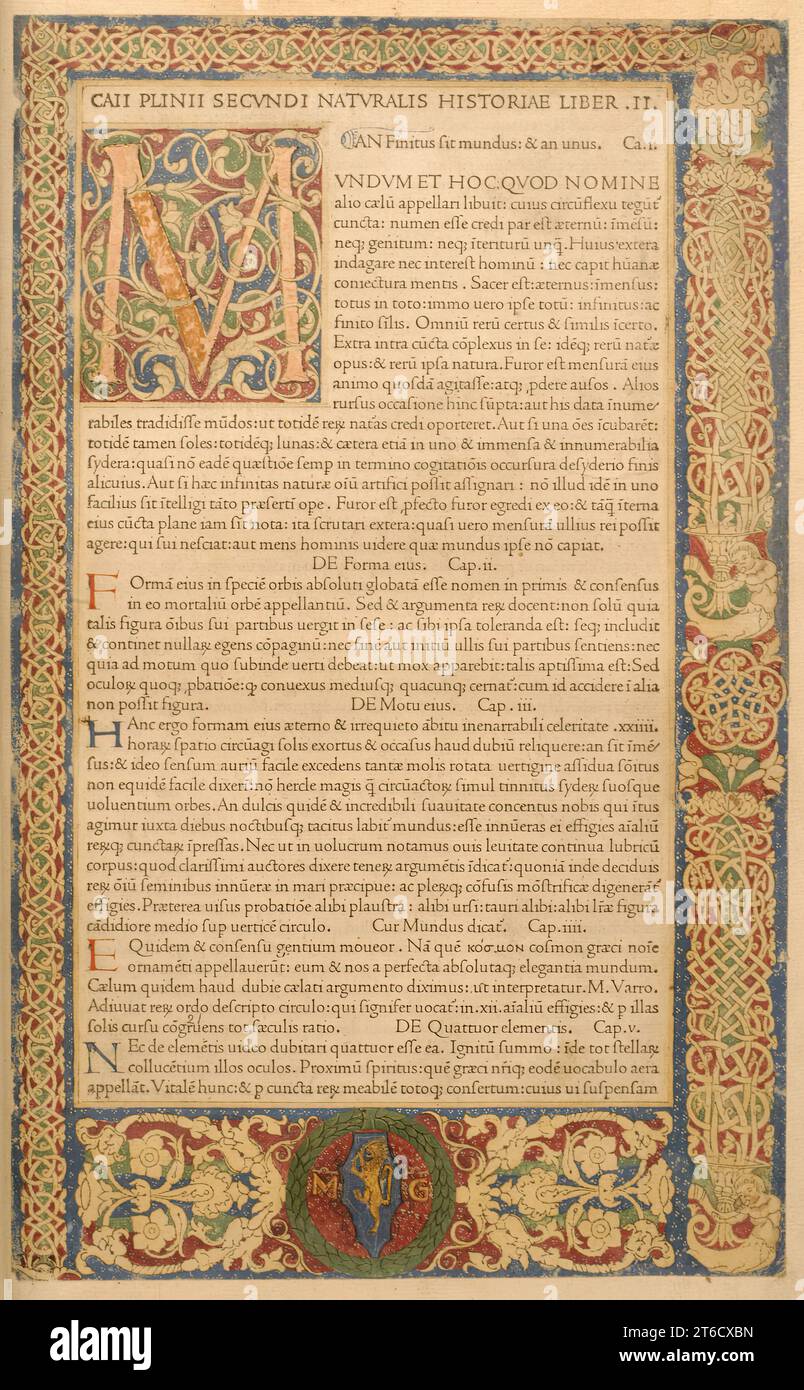 CAII PLINII SECVNDI NATVRALIS HISTORIAE LIBER .II.
AN Finitus sit mundus: & an unus. Ca.i.
M
VNDVM ET HOC: QVOD NOMINE
alio cælū appellari libuit: cuius circūflexu tegūt᷑
cuncta: numen esse credi par est æternū: īmēsū:
neq; genitum: neq; īteriturū unq̄. Huius extera
indagare nec interest hominū : nec capit hūanæ
coniectura mentis . Sacer est: æternus: īmensus:
totus in toto: immo uero ipse totū: infinitus: ac
finito silis. Omniū rerū certus & similis īcerto.
Extra intra cūcta cōplexus in se: idēq; rerū nat᷑æ
opus: & rerū ipsa natura. Furor est mensurā eius
animo quosdā agitasse: atq; ꝓdere ausos . Alios
rursus occasione hinc sūpta: aut his data īnume/
rabiles tradidisse mūdos: ut totidē reꝝ nat᷑as credi oporteret. Aut si una ōes īcubarēt:
totidē tamen soles: totidēq; lunas: & cætera etiā in uno & immensa & innumerabilia
sydera: quasi nō eadē quæstiōe semp in termino cogitatiōis occursura desyderio finis
alicuius. Aut si hæc infinitas naturæ oīū artifici possit assignari : nō illud idē in uno
facilius sit ītelligi tāto præsertī ope . Furor est ꝓfecto furor egredi ex eo: & tāq̄ īterna
eius cūcta plane iam sīt nota: ita scrutari extera: quasi uero mensurā ullius rei possit
agere: qui sui nesciat: aut mens hominis uidere quæ mundus ipse nō capiat.
DE Forma eius. Cap.ii.
FOrmā eius in speciē orbis absoluti globatā esse nomen in primis & consensus
in eo mortaliū orbē appellantiū. Sed & argumenta reꝝ docent: non solū quia
talis figura ōibus sui partibus uergit in sese : ac sibi ipsa toleranda est: seq; includit
& continet nullaꝝ egens cōpaginū: nec finē aut initiū ullis sui partibus sentiens: nec
quia ad motum quo subinde uerti debeat: ut mox apparebit: talis aptissima est: Sed
oculoꝝ quoq; ꝓbatiōe: ꝙ conuexus mediusq; quacunq; cernat᷑: cum id accidere ī alia
non possit figura. DE Motu eius. Cap . iii.
HAnc ergo formam eius æterno & irrequieto ābitu inenarrabili celeritate .xxiiii.
horaꝝ spatio circūagi solis exortus & occasus haud dubiū reliquere: an sit īmē/
sus: & ideo sensum auriū facile excedens tantæ molis rotata uertigine assidua sōitus
non equidē facile dixeri: nō hercle magis q̄ circūactoꝝ simul tinnitus sydeꝝ suosque
uoluentium orbes. An dulcis quidē & incredibili suauitate concentus nobis qui ītus
agimur iuxta diebus noctibusq; tacitus labit᷑ mundus: esse innūeras ei effigies aīaliū
reꝝq; cunctaꝝ īpressas. Nec ut in uolucrum notamus ouis leuitate continua lubricū
corpus: quod clarissimi auctores dixere teneꝝ argumētis īdicat᷑: quoniā inde deciduis
reꝝ ōiū seminibus innūeræ in mari præcipue: ac pleꝝq; cōfusis mōstrificæ digenerāt᷑
effigies. Præterea uisus probatiōe alibi plaustri : alibi ursi: tauri alibi: alibi lr̄æ figura
cādidiore medio sup uerticē circulo. Cur Mundus dicat᷑. Cap.iiii.
EQuidem & consensu gentium moueor . Nā quē κόσμον cosmon græci noīe
ornamēti appellauerūt: eum & nos a perfecta absolutaq; elegantia mundum.
Cælum quidem haud dubie cælati argumento diximus: ut interpretatur. M. Varro.
Adiuuat reꝝ ordo descripto circulo: qui signifer uocat᷑: in .xii. aīaliū effigies: & p illas
solis cursu cōgruens tot sæculis ratio. DE Quattuor elementis. Cap.v.
NEc de elemētis uideo dubitari quattuor esse ea. Ignitū summo : īde tot stellaꝝ
collucētium illos oculos. Proximū spiritus: quē græci nr̄iq; eodē uocabulo aera
appellāt. Vitalē hunc: & p cuncta reꝝ meabilē totoq; consertum: cuius ui suspensam
M G
alamy
alamy
2T6CXBN
Image ID: 2T6CXBN
www.alamy.com